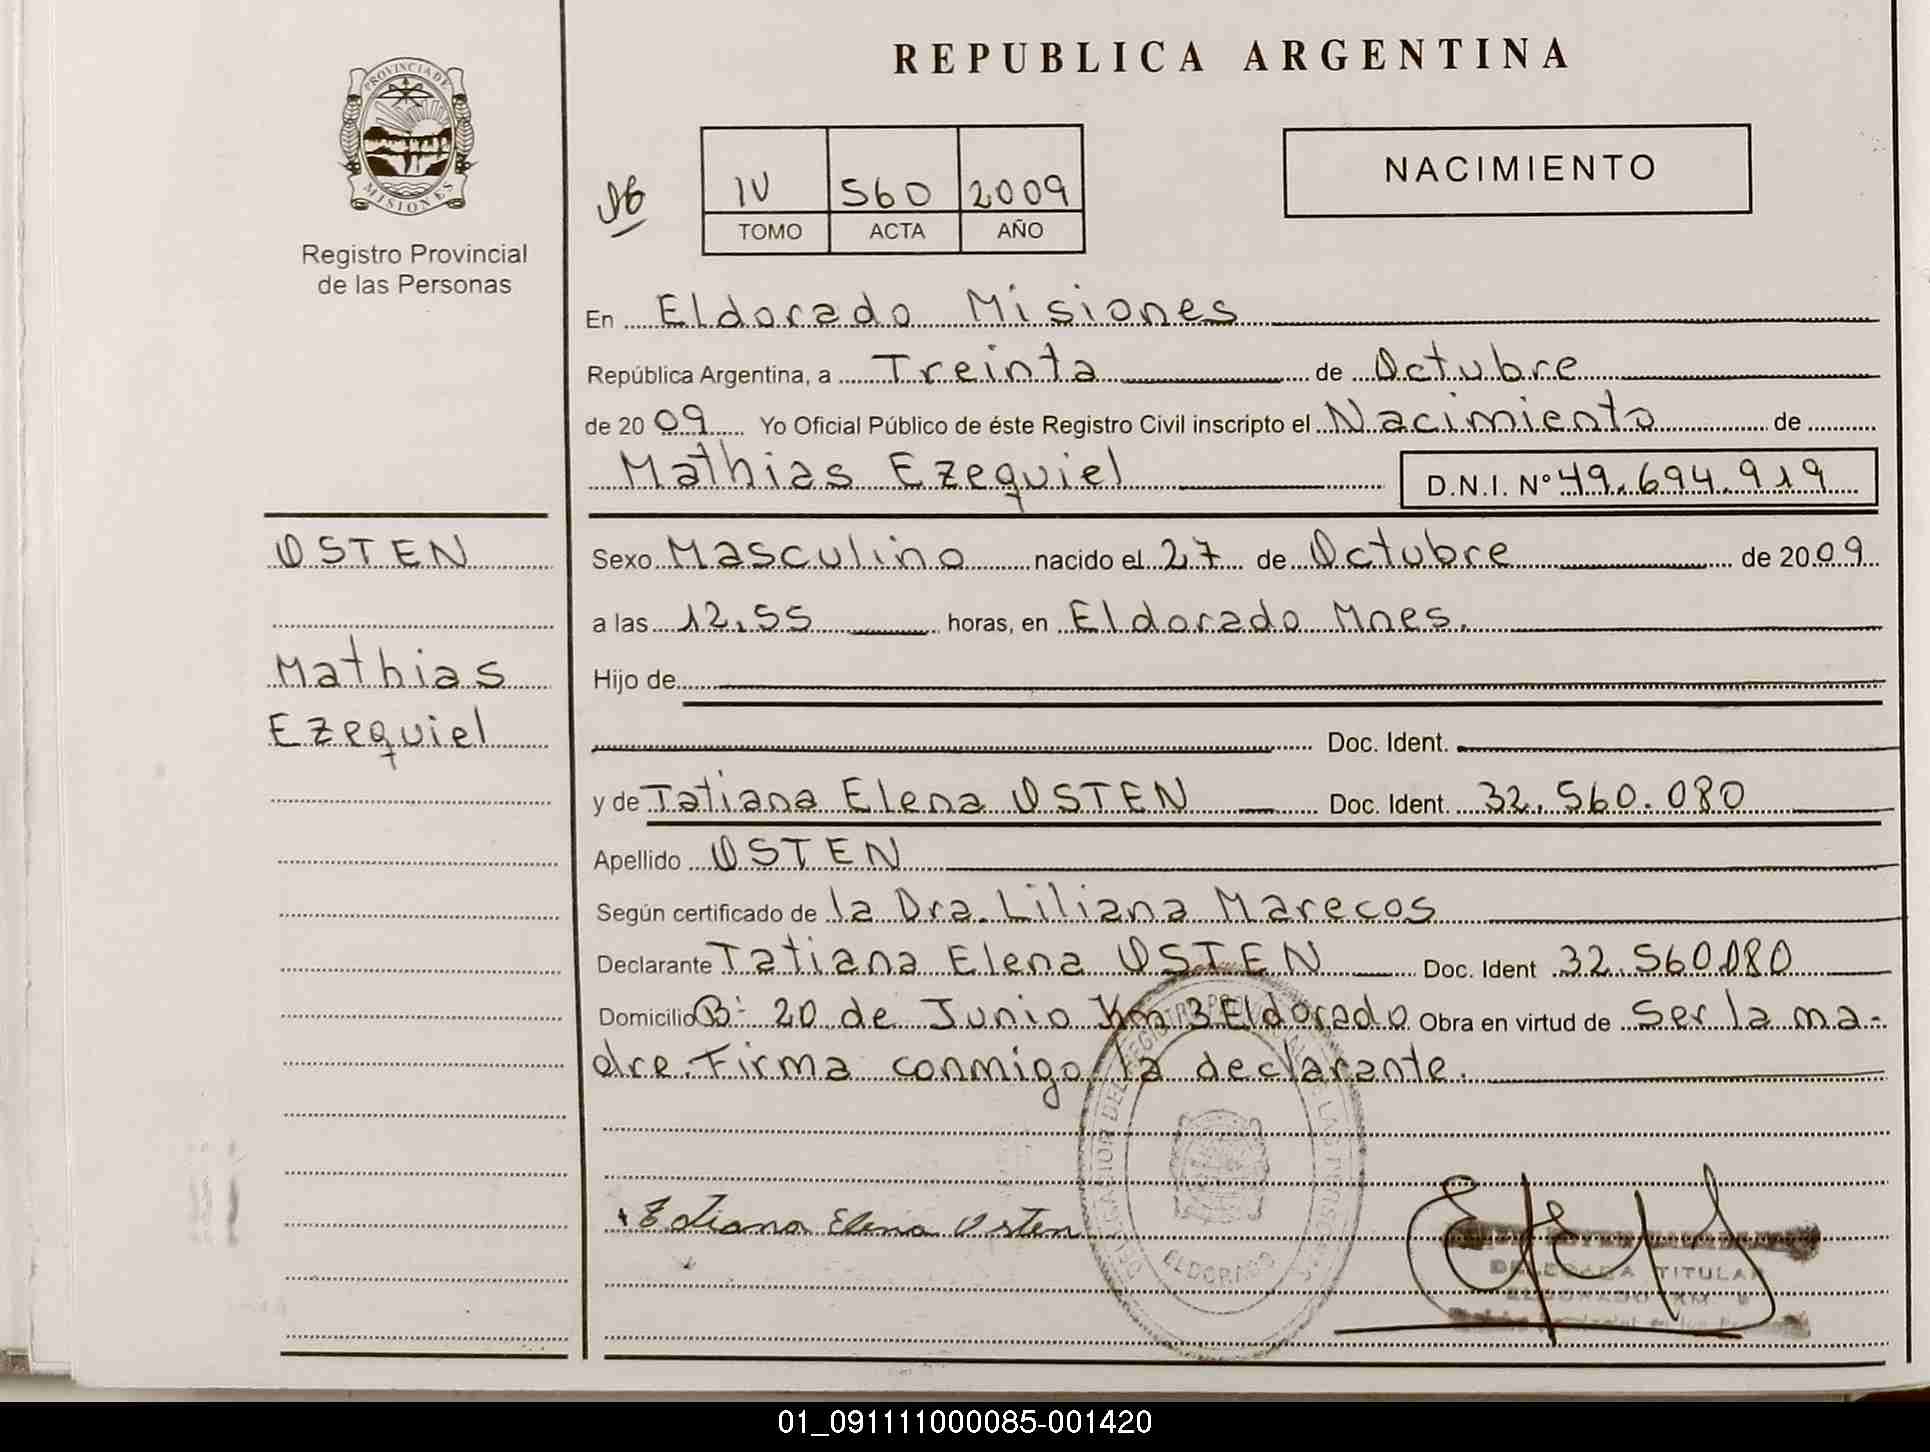 REPUBLICA ARGENTINA
PROVINCIA DE
MISIONES
Registro Provincial
de las Personas
IV 560 2009
TOMO ACTA AÑO
NACIMIENTO
En Eldorado Misiones
República Argentina, a Treinta de Octubre
de 20 09 Yo Oficial Público de éste Registro Civil inscripto el Nacimiento de
Mathias Ezequiel D.N.I. Nº 49.694.919
OSTEN
Mathias
Ezequiel
Sexo Masculino nacido el 27 de Octubre de 2009
a las 12.55 horas, en Eldorado Mnes.
Hijo de
Doc. Ident.
y de Tatiana Elena OSTEN Doc. Ident. 32.560.080
Apellido OSTEN
Según certificado de la Dra. Liliana Marecos
Declarante Tatiana Elena OSTEN Doc. Ident 32.560080
Domicilio B: 20 de Junio Km 3 Eldorado Obra en virtud de Ser la ma-
dre. Firma conmigo la declarante.
Tatiana Elena Osten
ELDORADO
DELEGADA TITULAR
01_091111000085-001420